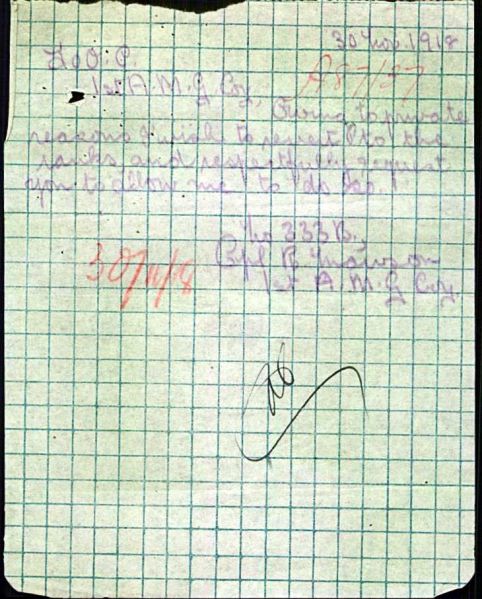 30 Nov. 1918
To O.C.
1st A.M.G Coy,
A87/37
Owing to private
reasons I wish to revert to the
ranks and respectfully request
you to allow me to do so.
No 333 B.,
Cpl
1st A.M.G Coy.
30/11/18